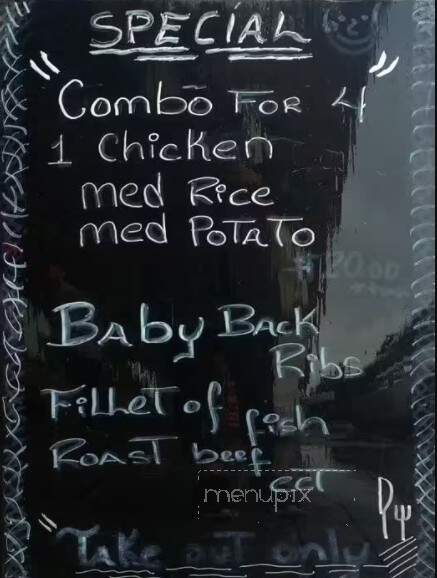 SPECIAL
"Combo FOR 4"
1 Chicken
med Rice
med PoTaTo
$20.00
BAby BAck
Ribs
Fillet of fish
ROAST beef
ect
menupix
"Take out only"